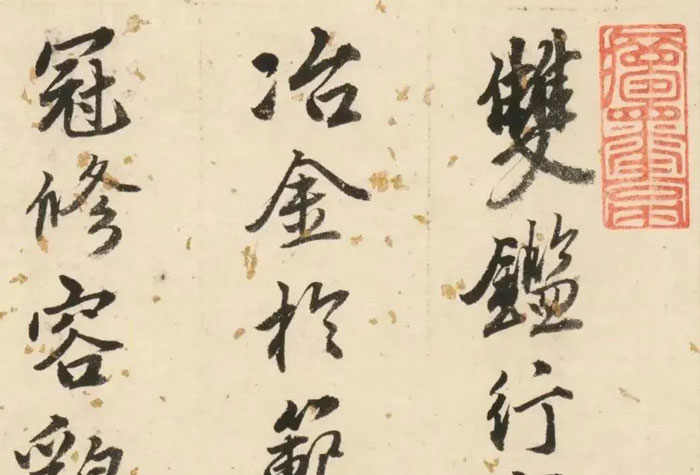 雙鑑行
冶金於範
冠修容貌